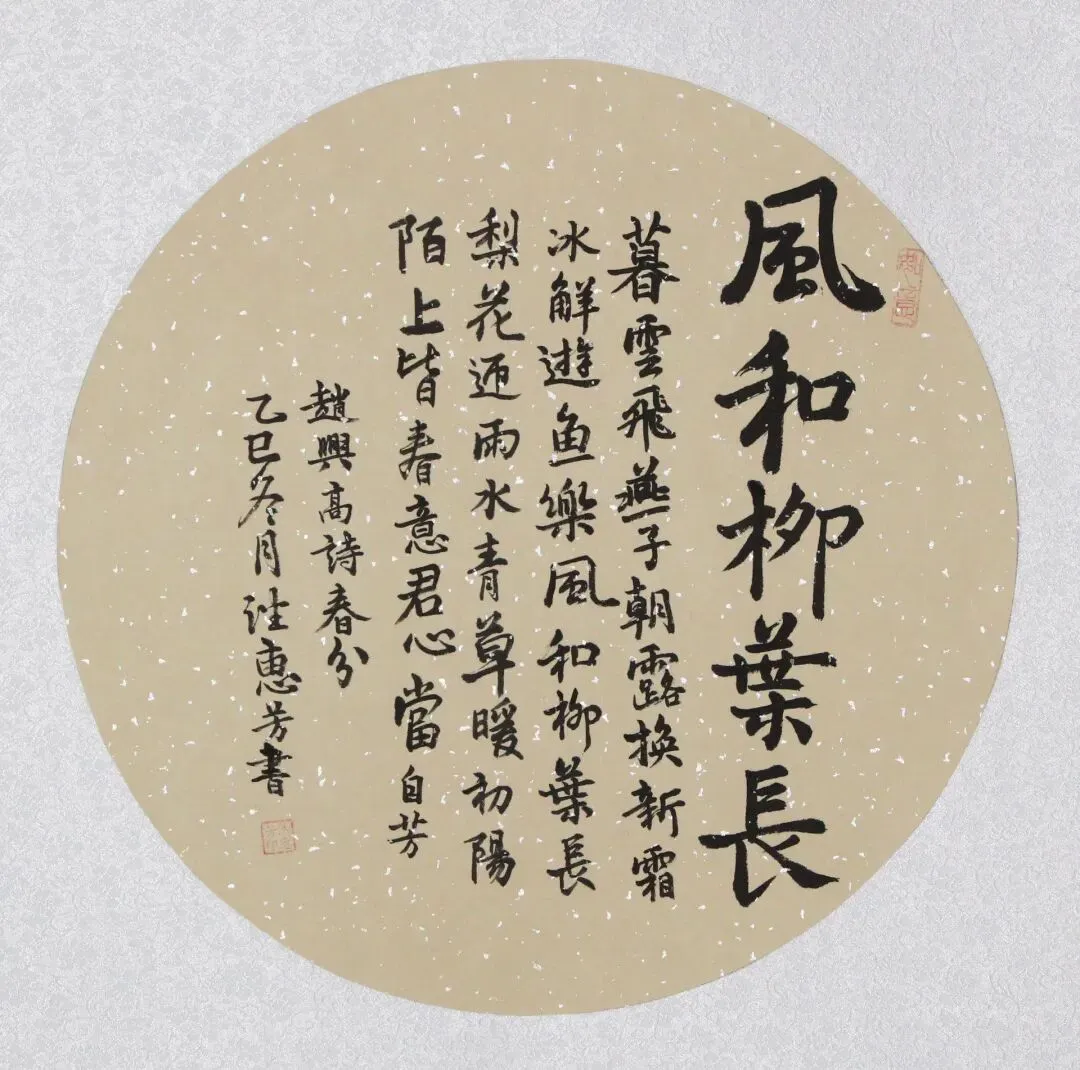 風和柳葉長
暮雲飛燕子朝露換新霜
冰觧遊鱼樂風和柳葉長
梨花迎雨水青草暖初陽
陌上皆春意君心當自芳
趙興高詩春分
乙巳冬月汪惠芳書